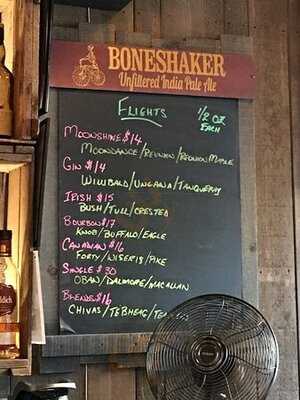 BONESHAKER
Unfiltered India Pale Ale
FLIGHTS
1/2 OZ
EACH
MOONSHINE $14
MOONDANCE/REUNION/REUNION MAPLE
GIN $14
WILLIBALD/UNGAVA/TANQUERAY
IRISH $15
BUSH/TULL/CRESTED
BOURBON $17
KNOB/BUFFALO/EAGLE
CANADIAN $16
FORTY/WISER'S/PIKE
SINGLE $30
OBAN/DALMORE/MACALLAN
BLENDS $16
CHIVAS/TEBHEAG/